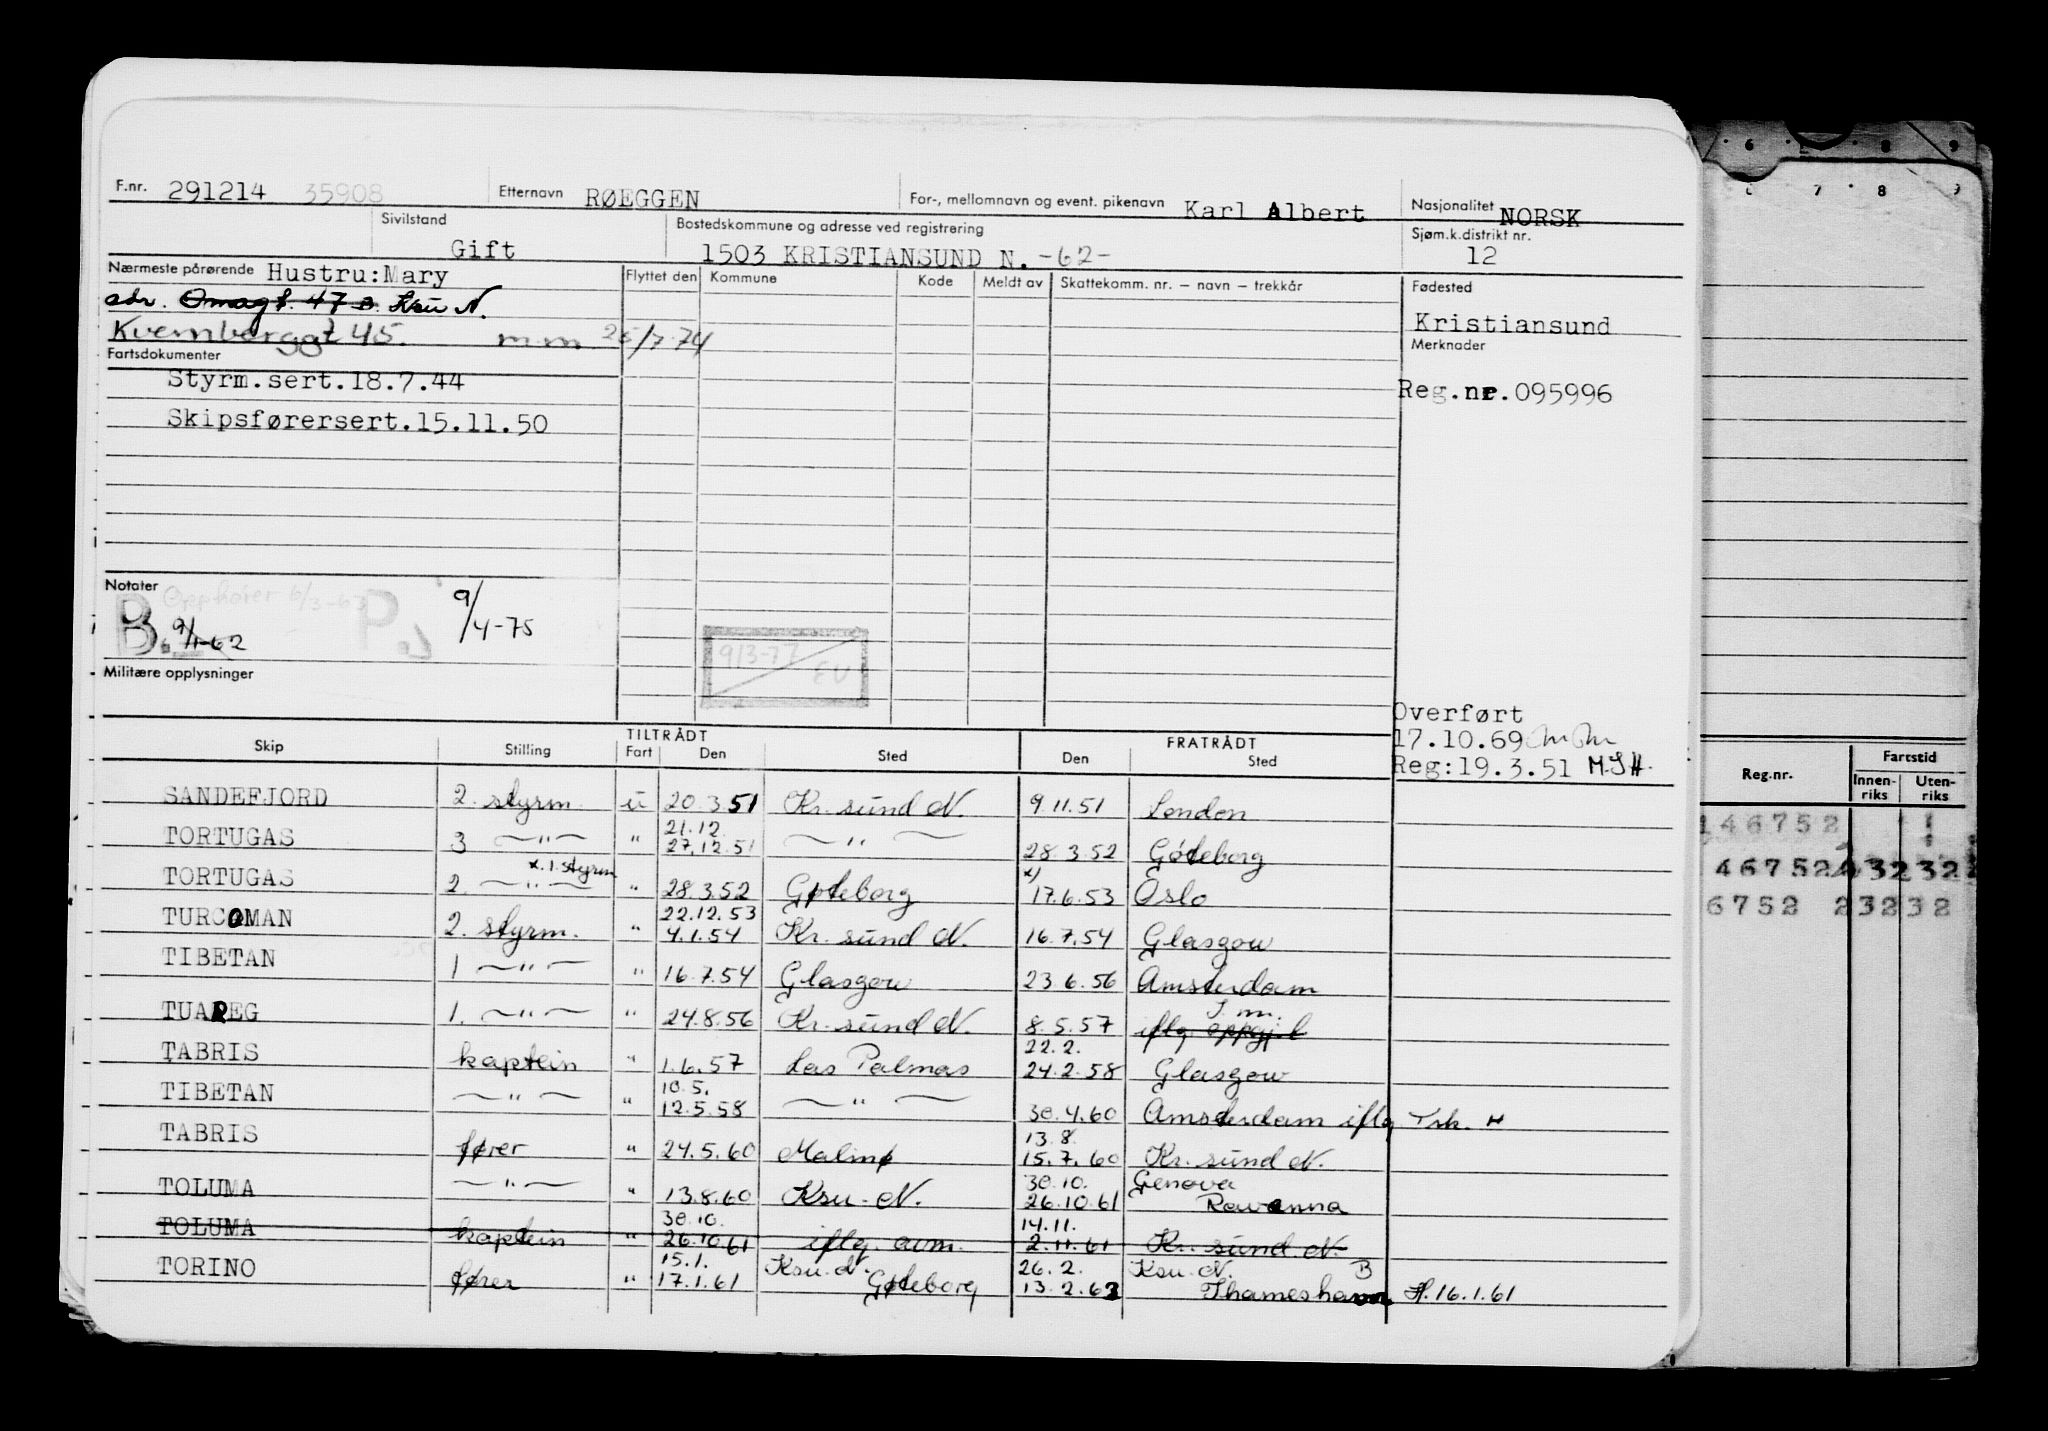 F.nr. 291214 35908 Etternavn RØEGGEN For-, mellomnavn og event. pikenavn Karl Albert Nasjonalitet NORSK
Sivilstand Gift Bostedskommune og adresse ved registrering 1503 KRISTIANSUND N. -62- Sjøm.k.distrikt nr. 12
Nærmeste pårørende Hustru: Mary Flyttet den Kommune Kode Meldt av Skattekomm. nr. – navn – trekkår Fødested
adr. Omagt. 47 B. Ksu N. Kristiansund
Kvernberggt 45. mm 25/7-74 Merknader
Fartsdokumenter
Styrm.sert.18.7.44 Reg.nr.095996
Skipsførersert.15.11.50
Notater Opphører 6/3-63
B. 9/1-62 P. 9/4-75 9/3-77 EU
Militære opplysninger
Overført
17.10.69 mm
Reg:19.3.51 M.S.H.
TILTRÅDT FRATRÅDT
Skip Stilling Fart Den Sted Den Sted
SANDEFJORD 2. styrm. u 20.3.51 Kr. sund N. 9.11.51 London
TORTUGAS 3 —"— " 21.12. 27.12.51 —"— 28.3.52 Gøteborg
TORTUGAS 2. —"— x. 1. styrm " 28.3.52 Gøteborg x) 17.6.53 Oslo
TURCOMAN 2. styrm. " 22.12.53 4.1.54 Kr. sund N. 16.7.54 Glasgow
TIBETAN 1 —"— " 16.7.54 Glasgow 23.6.56 Amsterdam
TUAREG 1. —"— " 24.8.56 Kr. sund N. 8.5.57 S.m. iflg. oppgj.l
TABRIS kaptein " 1.6.57 Las Palmas 22.2. 24.2.58 Glasgow
TIBETAN —"— " 10.5. 12.5.58 —"— 30.4.60 Amsterdam iflg Trk. H
TABRIS fører " 24.5.60 Malmø 13.8. 15.7.60 Kr. sund N.
TOLUMA —"— " 13.8.60 Ksu. N. 30.10. 26.10.61 Genova Ravenna
TOLUMA kaptein " 30.10. 26.10.61 iflg. avm. 14.11. 2.11.61 Kr. sund N.
TORINO fører " 15.1. 17.1.61 Ksu. N. Gøteborg 26.2. 13.2.62 Ksu. N. B Thameshavn H. 16.1.61
6 7 8 9
6 7 8 9
Reg.nr. Fartstid
Innen-riks Uten-riks
146752
46752 232 232
6752 232 32